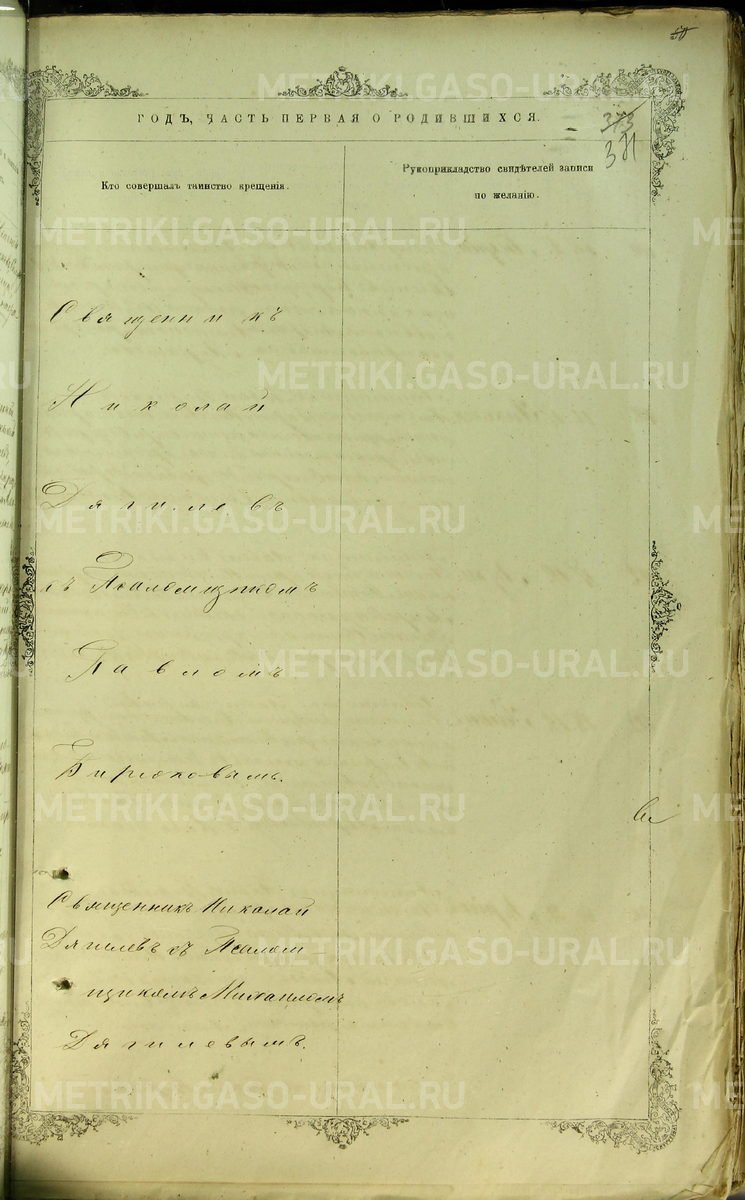 50
ГОДЪ, ЧАСТЬ ПЕРВАЯ О РОДИВШИХСЯ.
373
381
Кто совершалъ таинство крещенія.
Рукоприкладство свидѣтелей записи
по желанію.
Священникъ
Николай
Дягилевъ
съ Псаломщикомъ
Павломъ
Бирюковымъ.
Священникъ Николай
Дягилевъ съ Псалом-
щикомъ Михаиломъ
Дягилевымъ.
METRIKI.GASO-URAL.RU